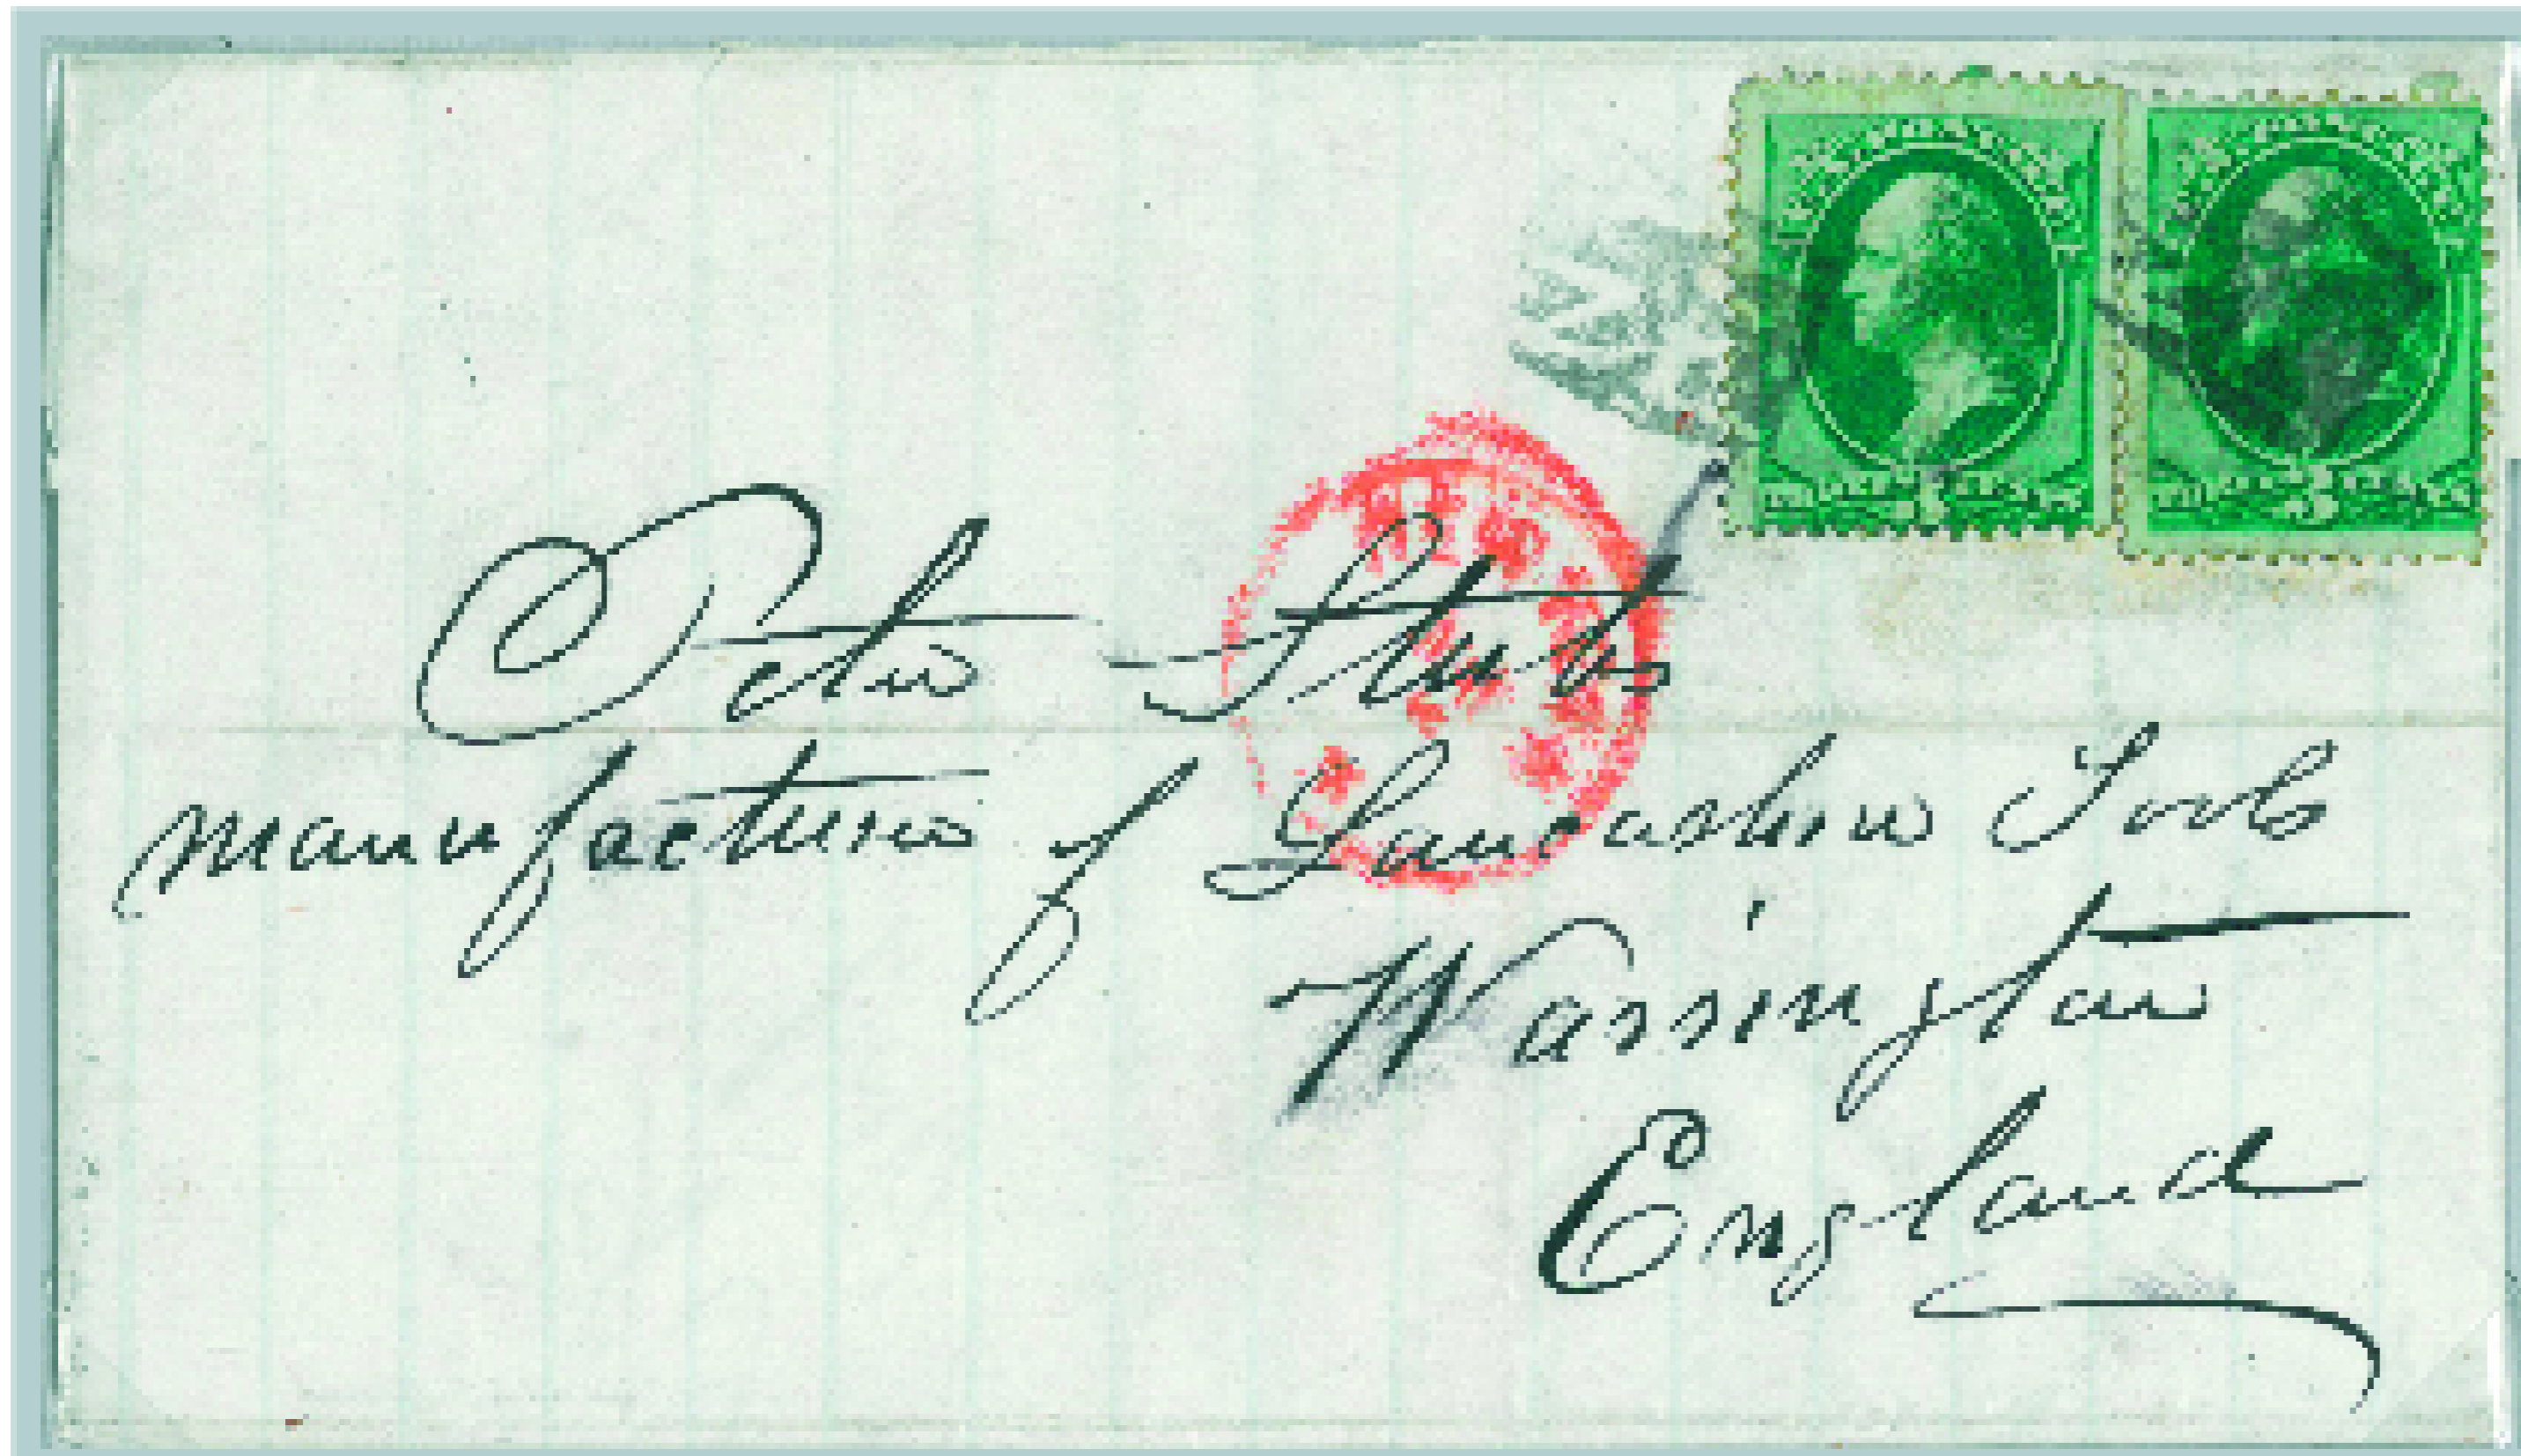 3
Peter Stubs
Manufacturer of Lancashire Tools
Warrington
England